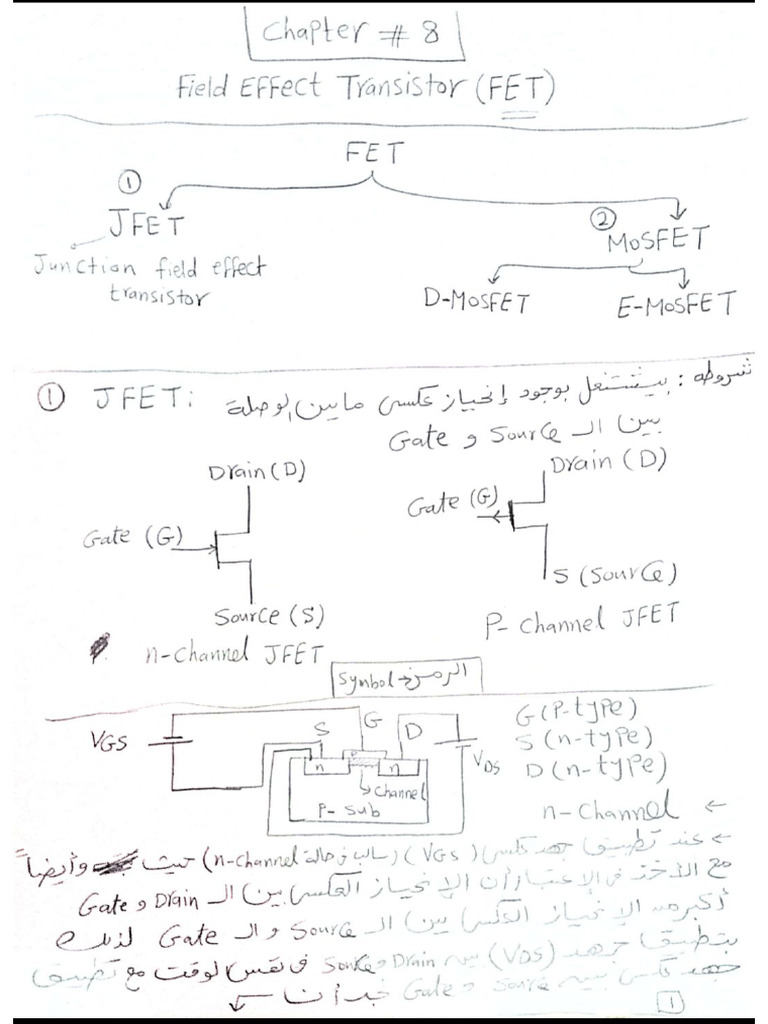 Chapter # 8
Field Effect Transistor (FET)
FET
① ②
JFET MOSFET
Junction field effect
transistor
D-MOSFET E-MOSFET
① JFET: شروطه : بيشتغل بوجود إنحياز عكسي مابين الوصلة
بين الـ Source و Gate
Drain (D)
Gate (G)
Source (S)
n-Channel JFET
Drain (D)
Gate (G)
S (Source)
P- Channel JFET
Symbol → الرمز
VGS
S
G
D
VDS
n
P
n
Channel
P- Sub
G (P-type)
S (n-type)
D (n-type)
n-Channel ←
← عند تطبيق جهد عكسي (VGS) (سالب في حالة n-channel) حيث وأيضاً
مع الأخذ في الإعتبار أن الإنحياز العكسي بين الـ Drain و Gate
أكبر من الإنحياز العكسي بين الـ Source والـ Gate لذلك
بتطبيق جهد (VDS) بين Drain و Source في نفس الوقت مع تطبيق
جهد عكسي بين Source و Gate نجد أن
1